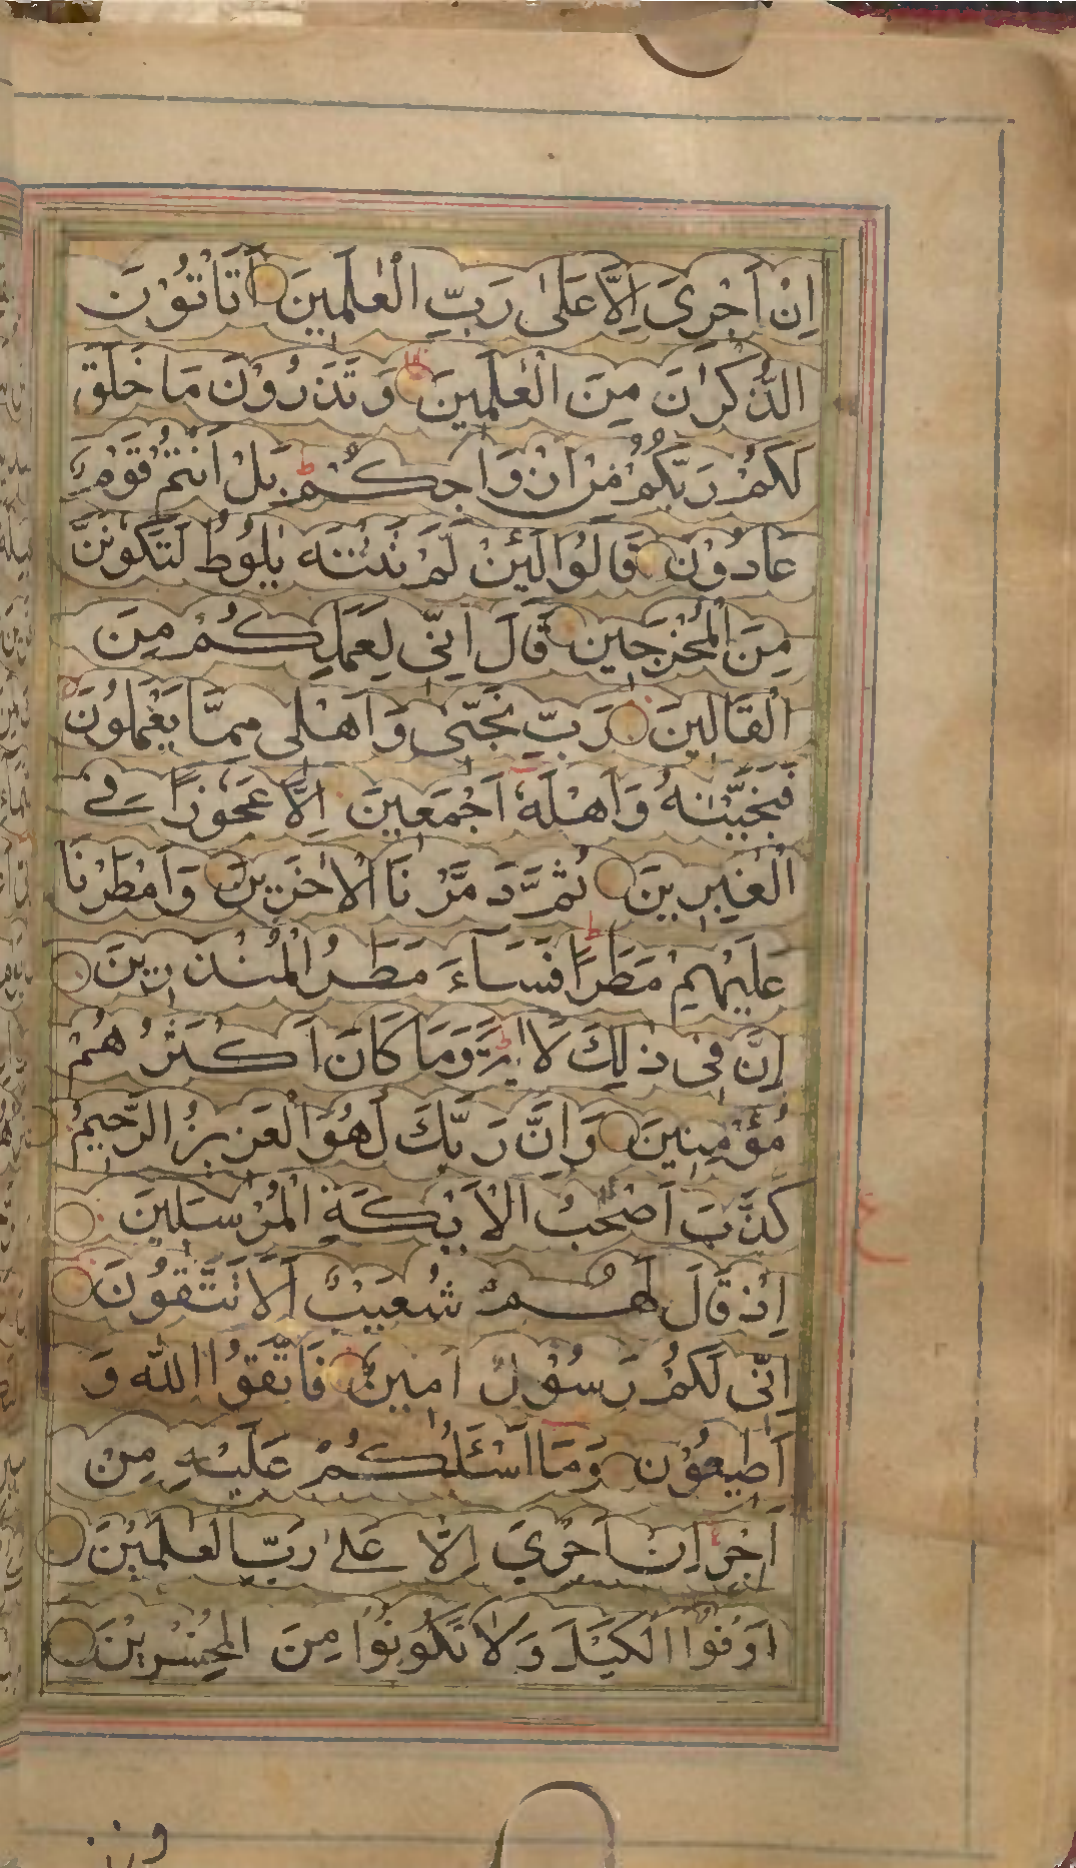 اِنْ اَجْرِيَ اِلَّا عَلٰى رَبِّ الْعٰلَمِينَ اَتَاْتُوْنَ
الذُّكْرَانَ مِنَ الْعٰلَمِينَ وَتَذَرُوْنَ مَا خَلَقَ
لَكُمْ رَبُّكُمْ مِّنْ اَزْوَاجِكُمْ ط بَلْ اَنْتُمْ قَوْمٌ
عَادُوْنَ قَالُوْا لَئِنْ لَّمْ تَنْتَهِ يٰلُوْطُ لَتَكُوْنَنَّ
مِنَ الْمُخْرَجِينَ قَالَ اِنِّى لِعَمَلِكُمْ مِنَ
الْقَالِينَ رَبِّ نَجِّنِى وَاَهْلِى مِمَّا يَعْمَلُوْنَ
فَنَجَّيْنٰهُ وَاَهْلَهٗ اَجْمَعِينَ اِلَّا عَجُوْزًا فِے
الْغٰبِرِينَ ثُمَّ دَمَّرْنَا الْاٰخَرِينَ وَاَمْطَرْنَا
عَلَيْهِمْ مَطَرًا ط فَسَاءَ مَطَرُ الْمُنْذَرِينَ
اِنَّ فِى ذٰلِكَ لَاٰيَةً ط وَمَا كَانَ اَكْثَرُهُمْ
مُؤْمِنِينَ وَاِنَّ رَبَّكَ لَهُوَ الْعَزِيزُ الرَّحِيمُ
كَذَّبَ اَصْحٰبُ الْاَيْكَةِ الْمُرْسَلِينَ
اِذْ قَالَ لَهُمْ شُعَيْبٌ اَلَا تَتَّقُوْنَ
اِنِّى لَكُمْ رَسُوْلٌ اَمِينٌ فَاتَّقُوا اللّٰهَ وَ
اَطِيعُوْنِ وَمَا اَسْئَلُكُمْ عَلَيْهِ مِنْ
اَجْرٍ اِنْ اَجْرِيَ اِلَّا عَلٰى رَبِّ الْعٰلَمِيْنَ
اَوْفُوا الْكَيْلَ وَلَا تَكُوْنُوْا مِنَ الْمُخْسِرِيْنَ
ع
وزن